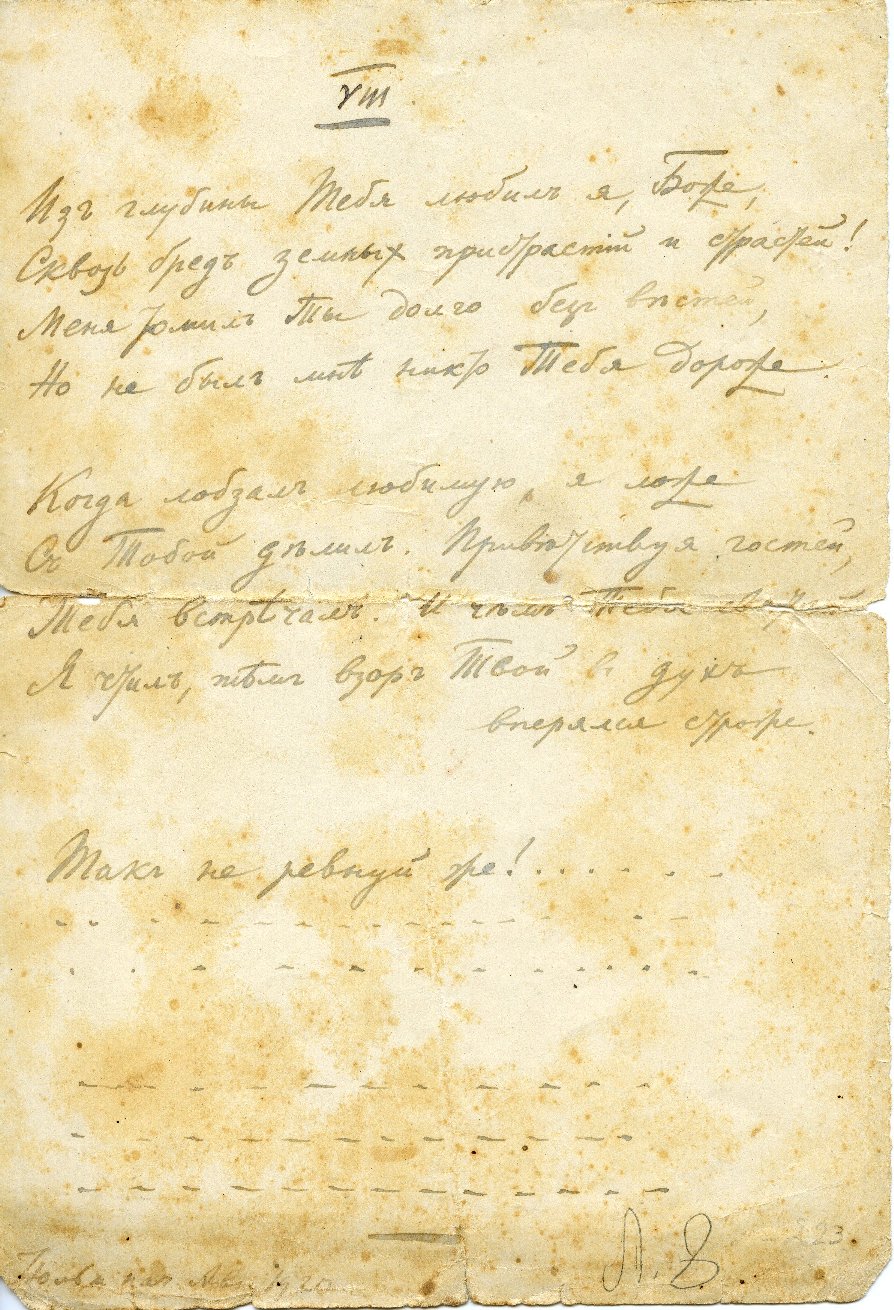 VIII
Изъ глубины Тебя любилъ я, Боже,
Сквозь бредъ земныхъ пристрастій и страстей!
Меня томилъ Ты долго безъ вѣстей,
Но не былъ мнѣ никто Тебя дороже.
Когда лобзалъ любимую, я ложе
Съ Тобой дѣлилъ. Привѣтствуя гостей,
Тебя встрѣчалъ. И чѣмъ Тебя
Я чтилъ, тѣмъ взоръ Твой въ духъ
вперялся строже.
Такъ не ревнуй же!........